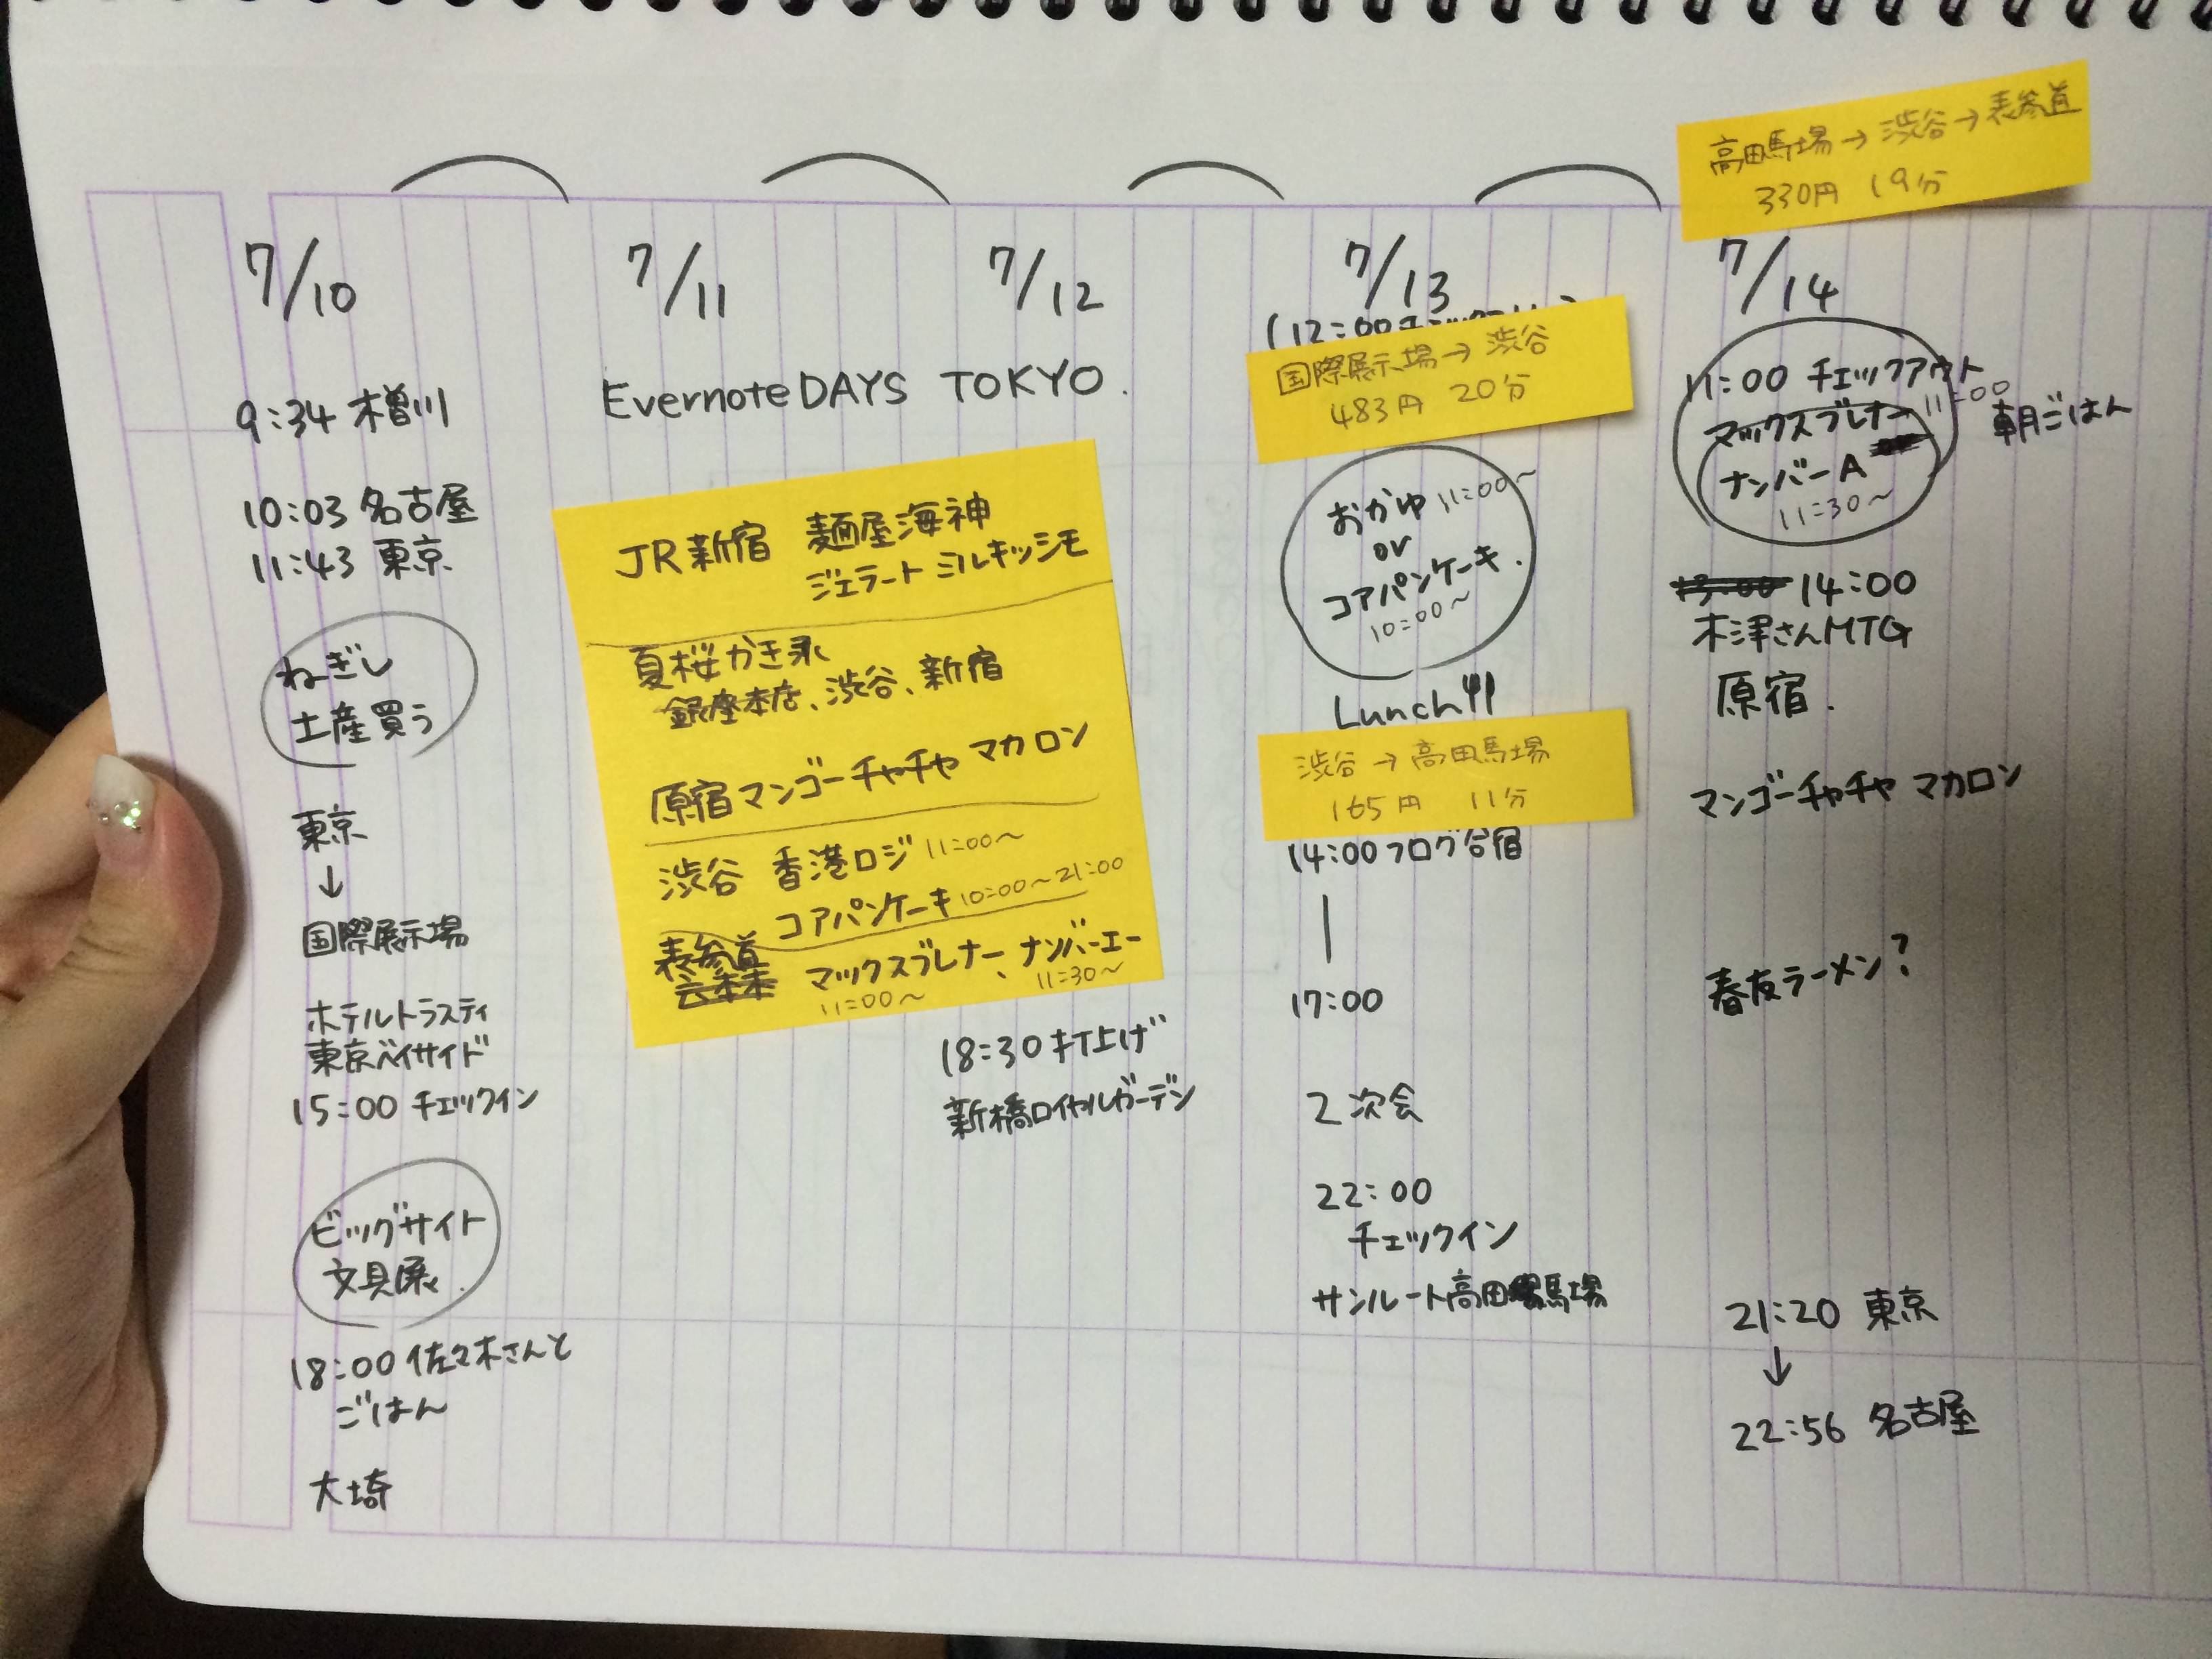 7/10
9:34 木曽川
10:03 名古屋
11:43 東京
ねぎし
土産買う
東京
↓
国際展示場
ホテルトラスティ
東京ベイサイド
15:00 チェックイン
ビッグサイト
文具展.
18:00 佐々木さんと
ごはん
大埼
7/11
7/12
Evernote DAYS TOKYO.
JR新宿 麺屋海神
ジェラート ミルキッシモ
夏桜かき氷
銀座本店、渋谷、新宿
原宿マンゴーチャチャ マカロン
渋谷 香港ロジ 11:00〜
コアパンケーキ 10:00〜21:00
表参道
マックスブレナー、ナンバーエー
11:00〜 11:30〜
18:30 打上げ
新橋ロイヤルガーデン
7/13
(12:00
国際展示場→渋谷
483円 20分
おかゆ 11:00〜
or
コアパンケーキ.
10:00〜
Lunch
渋谷→高田馬場
165円 11分
14:00 ブログ合宿
|
17:00
2次会
22:00
チェックイン
サンルート高田馬場
高田馬場→渋谷→表参道
330円 19分
7/14
11:00 チェックアウト
マックスブレナー 11:00
朝ごはん
ナンバーA
11:30〜
14:00
木津さんMTG
原宿.
マンゴーチャチャ マカロン
春友ラーメン?
21:20 東京
↓
22:56 名古屋